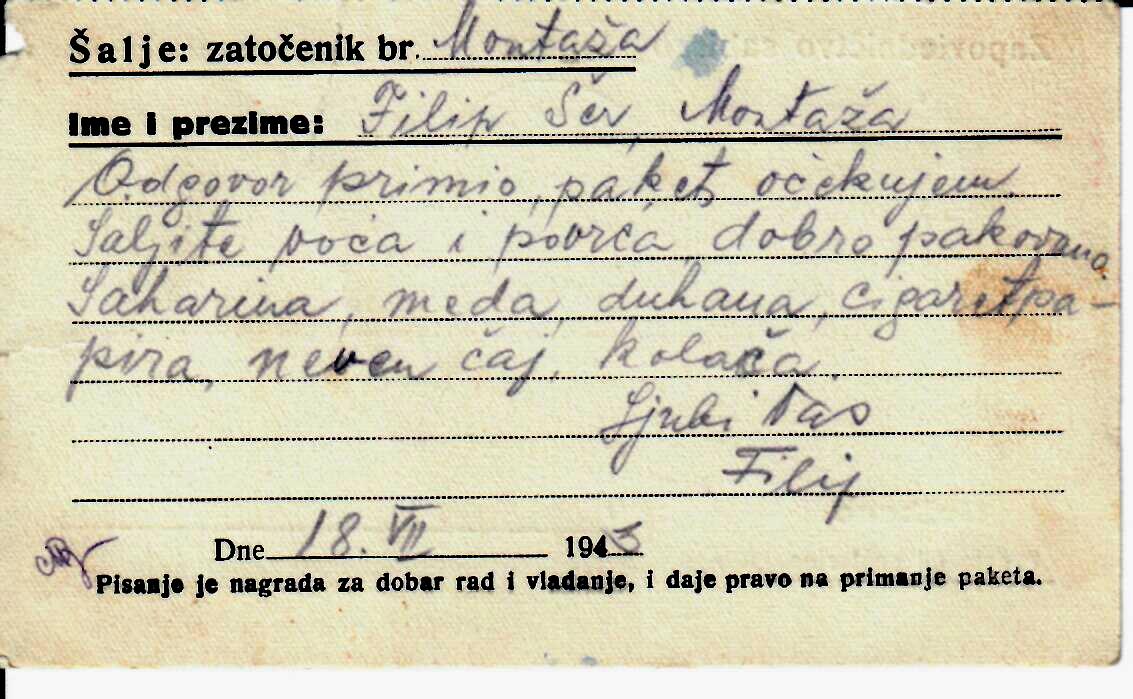 Šalje: zatočenik br. Montaža
Ime i prezime: Filip Šer, Montaža
Odgovor primio, paket očekujem.
Šaljite voća i povrća dobro pakovano.
Saharina, meda, duhana, cigaretpa-
pira, neven čaj, kolača.
Ljubi Vas
Filip
Dne 18. VII 1943
Pisanje je nagrada za dobar rad i vladanje, i daje pravo na primanje paketa.